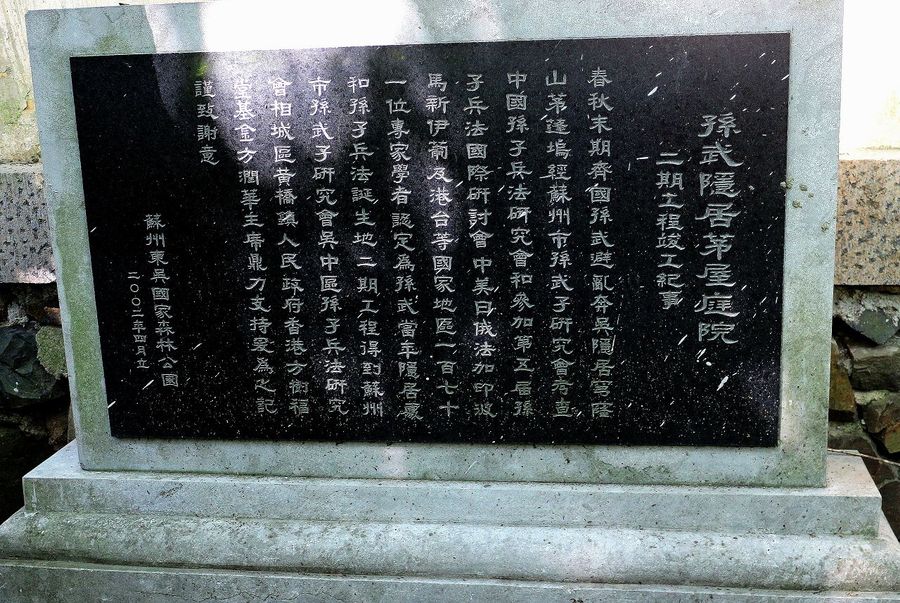 孫武隱居茅屋庭院
二期工程竣工紀事
春秋末期齊國孫武避亂奔吳隱居穹窿
山茅蓬塢經蘇州市孫武子研究會考查
中國孫子兵法研究會和參加第五屆孫
子兵法國際研討會中美日俄法加印波
馬新伊葡及港台等國家地區一百七十
一位專家學者認定為孫武當年隱居處
和孫子兵法誕生地二期工程得到蘇州
市孫武子研究會吳中區孫子兵法研究
會相城區黃橋鎮人民政府香港方樹福
堂基金方潤華主席鼎力支持案為之記
謹致謝意
蘇州東吳國家森林公園
二〇〇二年四月立